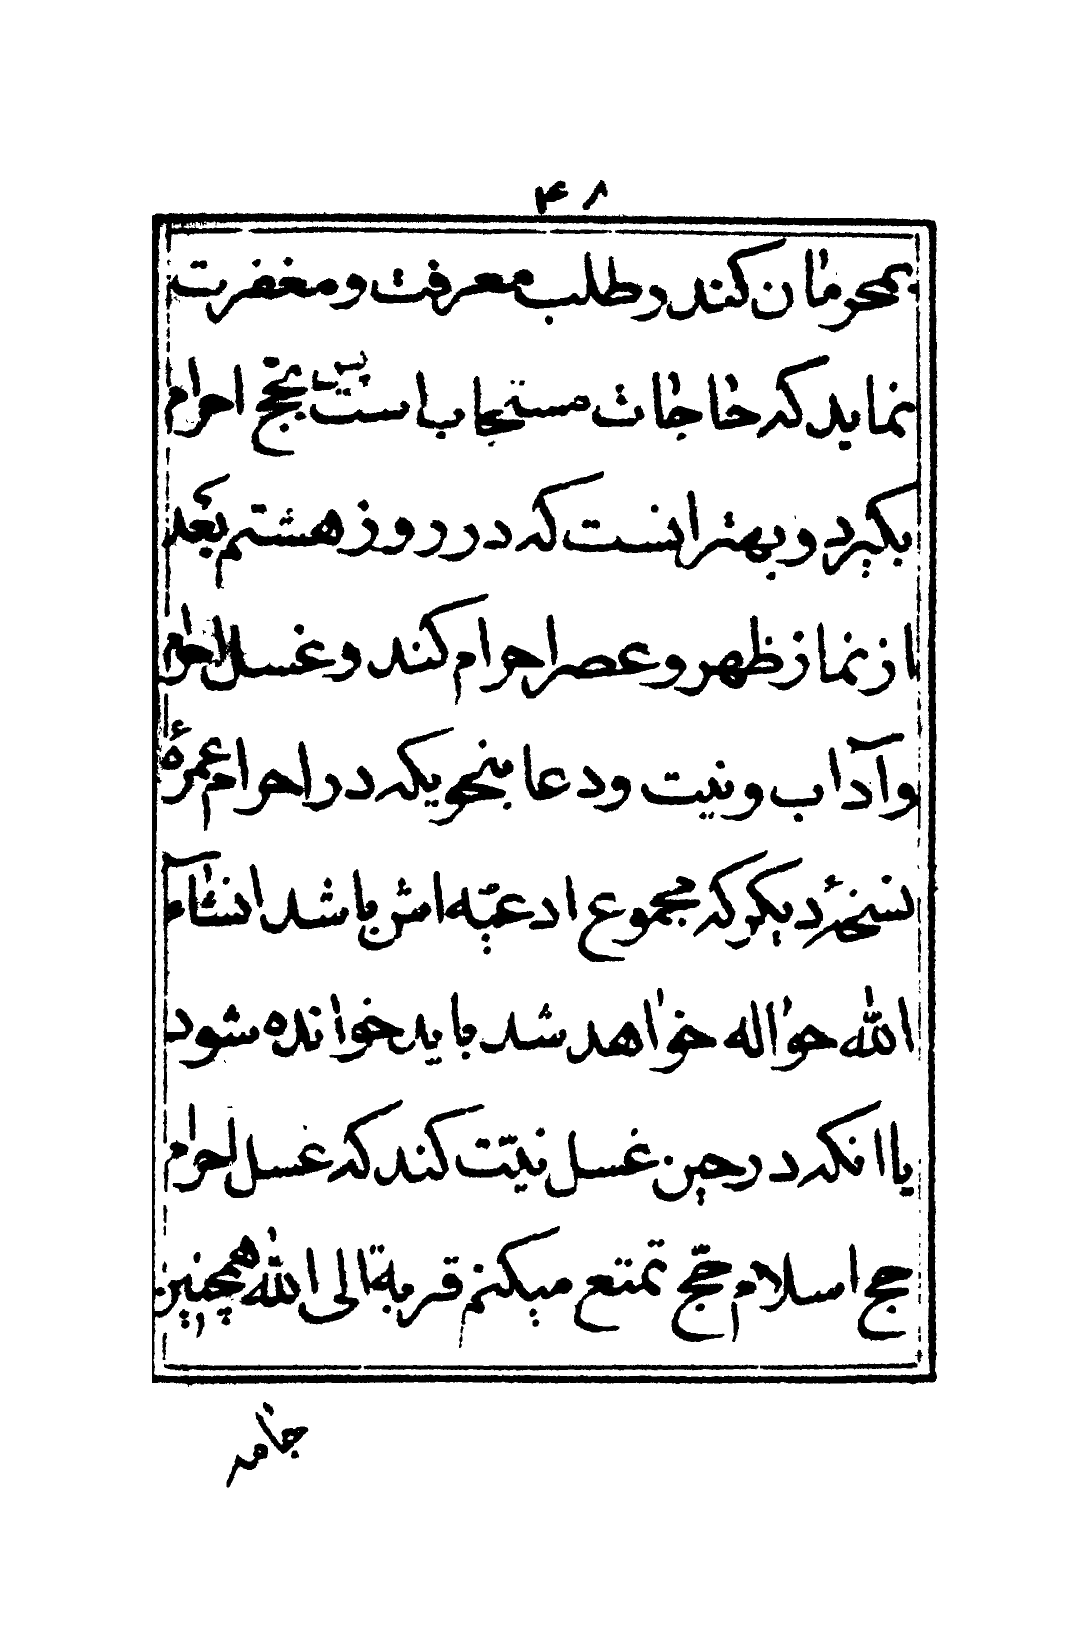 ۴۸
بمحرومان کنند و طلب معرفت و مغفرت
نماید که حاجات مستجاب است پس بحج احرام
بگیرد و بهتر انست که در روز هشتم بعد
از نماز ظهر و عصر احرام کنند و غسل احرام
و آداب و نیت و دعا بنحویکه در احرام عمرهٔ
نسخهٔ دیگر که مجموع ادعیّه اش باشد انشآء
الله حواله خواهد شد باید خوانده شود
یا انکه در حین غسل نیّت کند که غسل احرام
حج اسلام حجّ تمتع میکنم قربة الی الله همچنین
جامه